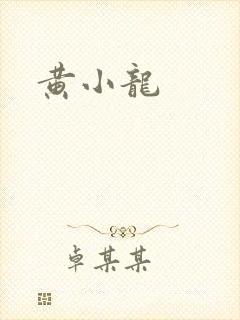 黄小龍
卓某某